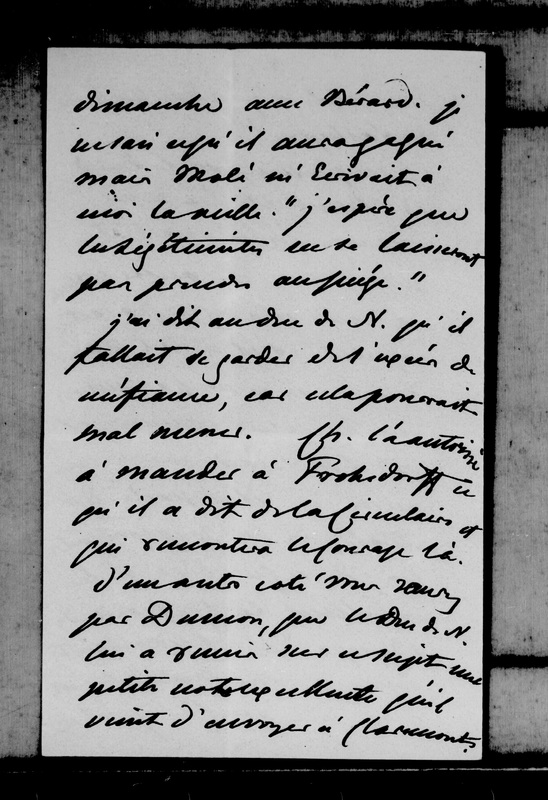 dimanche avec Bérard. je
ne sais ce qu'il aura gagné
mais Molé m'écrivait à
moi la veille. "j'espère que
les légitimistes ne se laisseront
pas prendre au piège."
j'ai dit au duc de N. qu'il
fallait se garder de l'excès de
méfiance, car cela pourrait
mal mener. Ch. l'a autorisé
à mander à Frohsdorff ce
qu'il a dit de la Circulaire et
qui remontera le courage là.
D'un autre coté vous saurez
par Dumon, que le Duc de N.
lui a remis sur ce sujet une
petite note excellente qu'il
vient d'envoyer à Claremont.